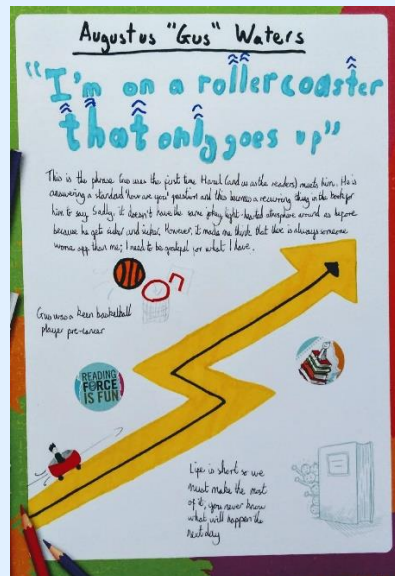 Augustus "Gus" Waters
"I'm on a rollercoaster
that only goes up"
This is the phrase Gus uses the first time Hazel (and us as the readers) meets him. He is
answering a standard 'how are you' question and this becomes a recurring thing in the book for
him to say. Sadly, it doesn't have the same jokey light-hearted atmosphere around as before
because he gets sicker and sicker. However, it made me think that there is always someone
worse off than me; I need to be grateful for what I have.
Gus was a keen basketball
player pre-cancer
READING
FORCE
IS FUN
Life is short so we
must make the most
of it, you never know
what will happen the
next day